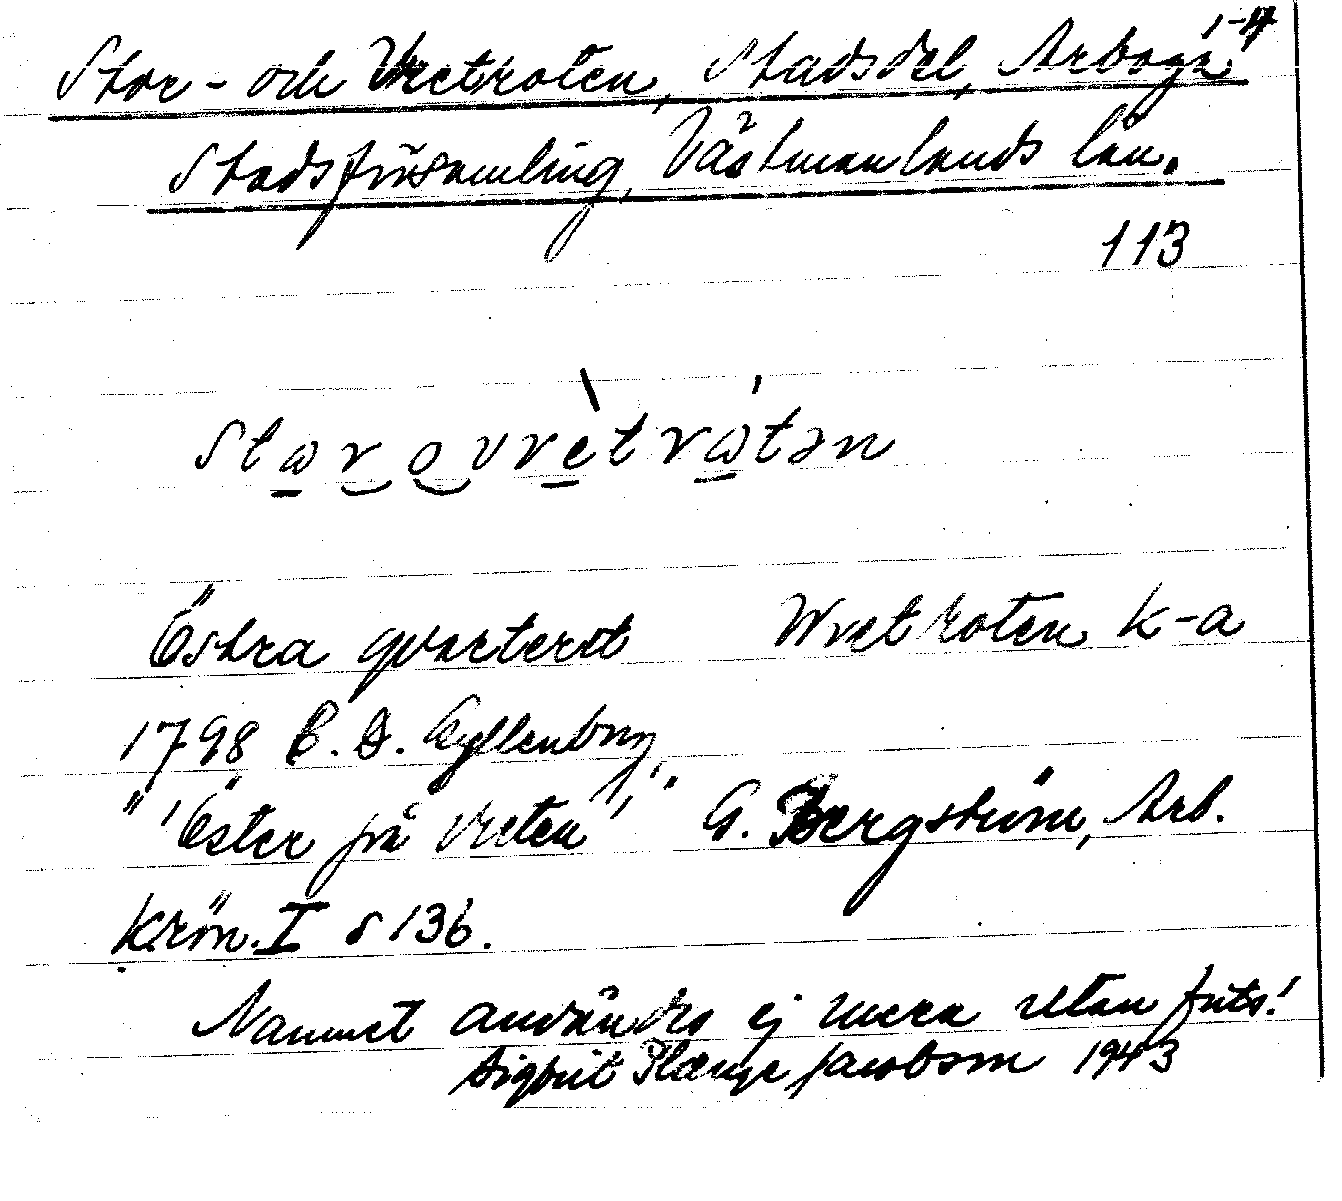 1-17
Stor- och Vretroten, Stadsdel, Arboga
Stadsförsamling, Västmanlands län.
113
Storovrètrotən
Östra qvarteret Wretroten k-a
1798 C. G. Gyllenborg
"'Öster på Vreten'," G. Bergström, Arb.
Krön. I s 136.
Namnet användes ej mera utan juts!
Sigbrit Plænge Jacobson 1943